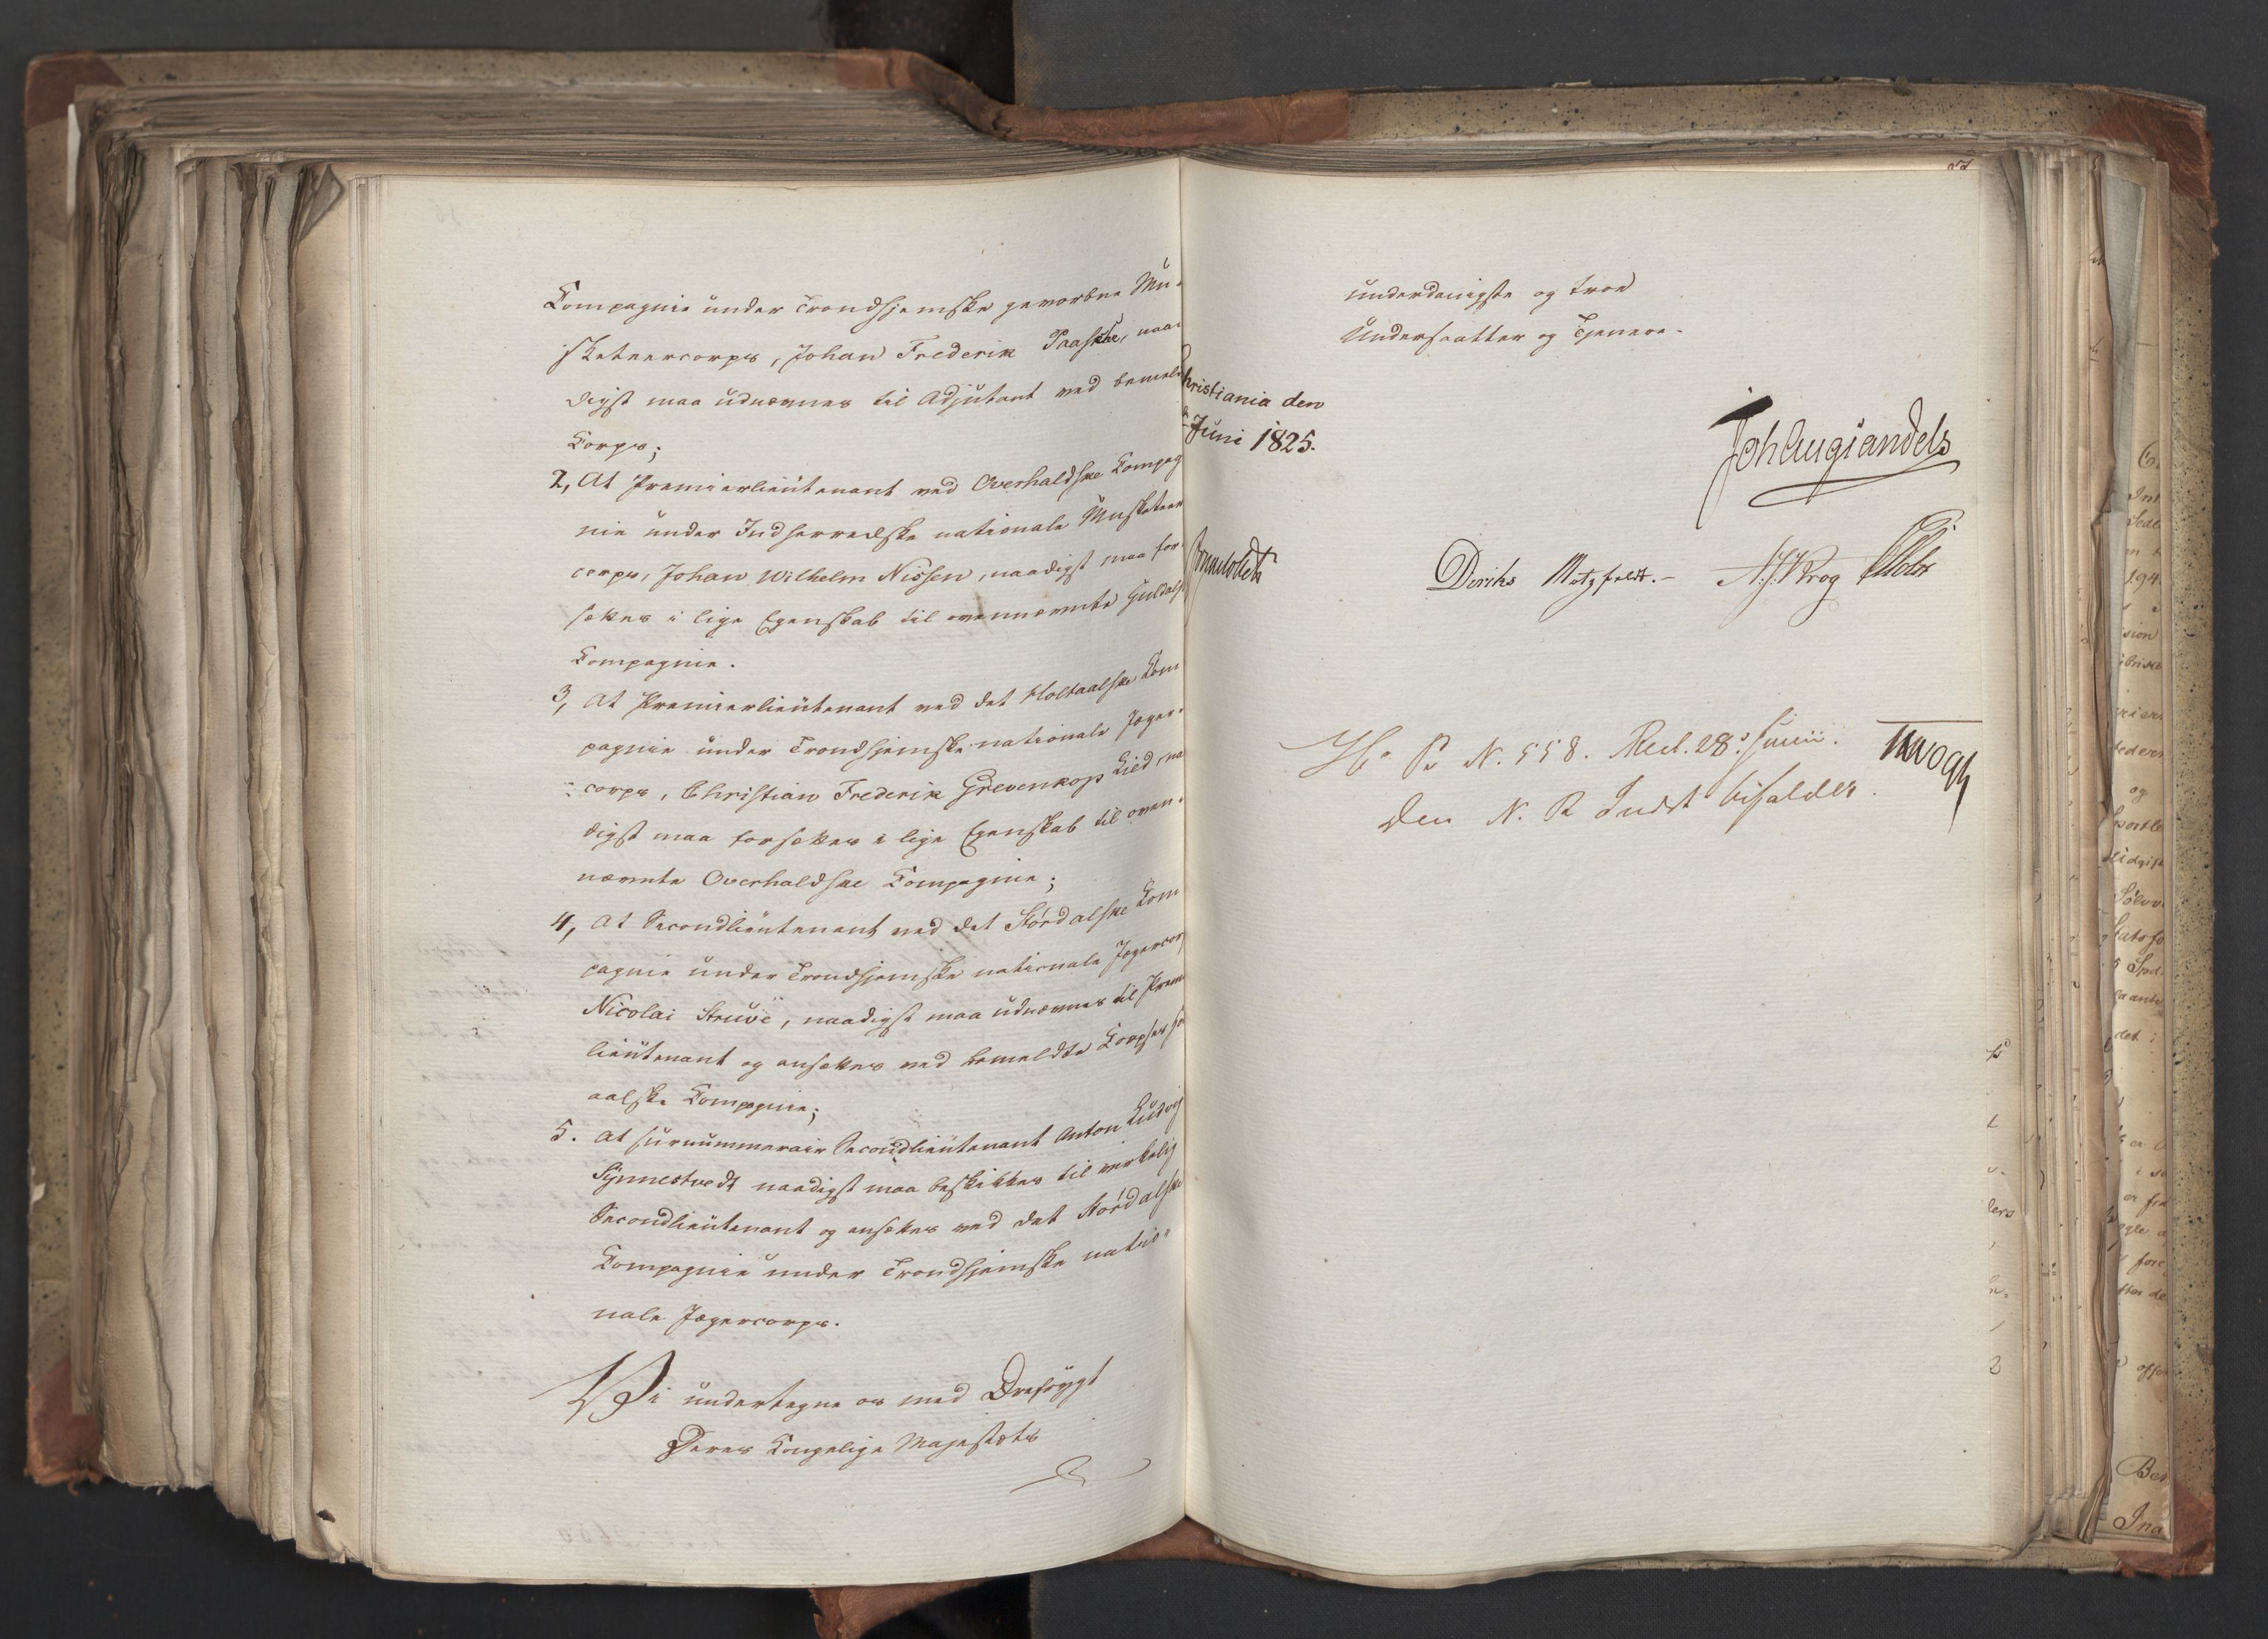 Compagnie under Trondhjemske gevorbne Mu-
sketeercorps, Johan Frederik Paaske, naa-
digst maa udnævnes til Adjutant ved bemeld
Corps;
2, At Premierlieutenant ved Overhaldske Compag
nie under Indherredske nationale Musketeer
corps, Johan Wilhelm Nissen, naadigst maa for-
sættes i lige Egenskab til ovennævnte Guldals
Compagnie.
3, At Premierlieutenant ved det Holtaalske Com
pagnie under Trondhjemske nationale Jæger-
corps, Christian Frederik Grevenkop Lied, na
digst maa forsættes i lige Egenskab til oven-
nævnte Overhaldske Compagnie;
4, At Secondlieutenant ved det Stördalske Com
pagnie under Trondhjemske nationale Jægercorp
Nicolai Struve, naadigst maa udnævnes til Prem
lieutenant og ansættes ved bemeldte Corpses
aalske Compagnie;
5. At surnummerair Secondlieutenant Anton Ludvig
Synnestvedt naadigst maa beskikkes til virkelig
Secondlieutenant og ansættes ved det Stördalske
Compagnie under Trondhjemske natio-
nale Jægercorps.
Vi undertegne os med Dybeste
Deres Kongelige Majestæts
underdanigste og troe
Undersaatter og Tjenere.
hristiania den
Juni 1825.
Joh Aug Sandels
Diriks Motzfeldt. N. J. Krog
H. P. N. 558. Recl. 28 Junii.
Den N. R. Indst bifaldes.